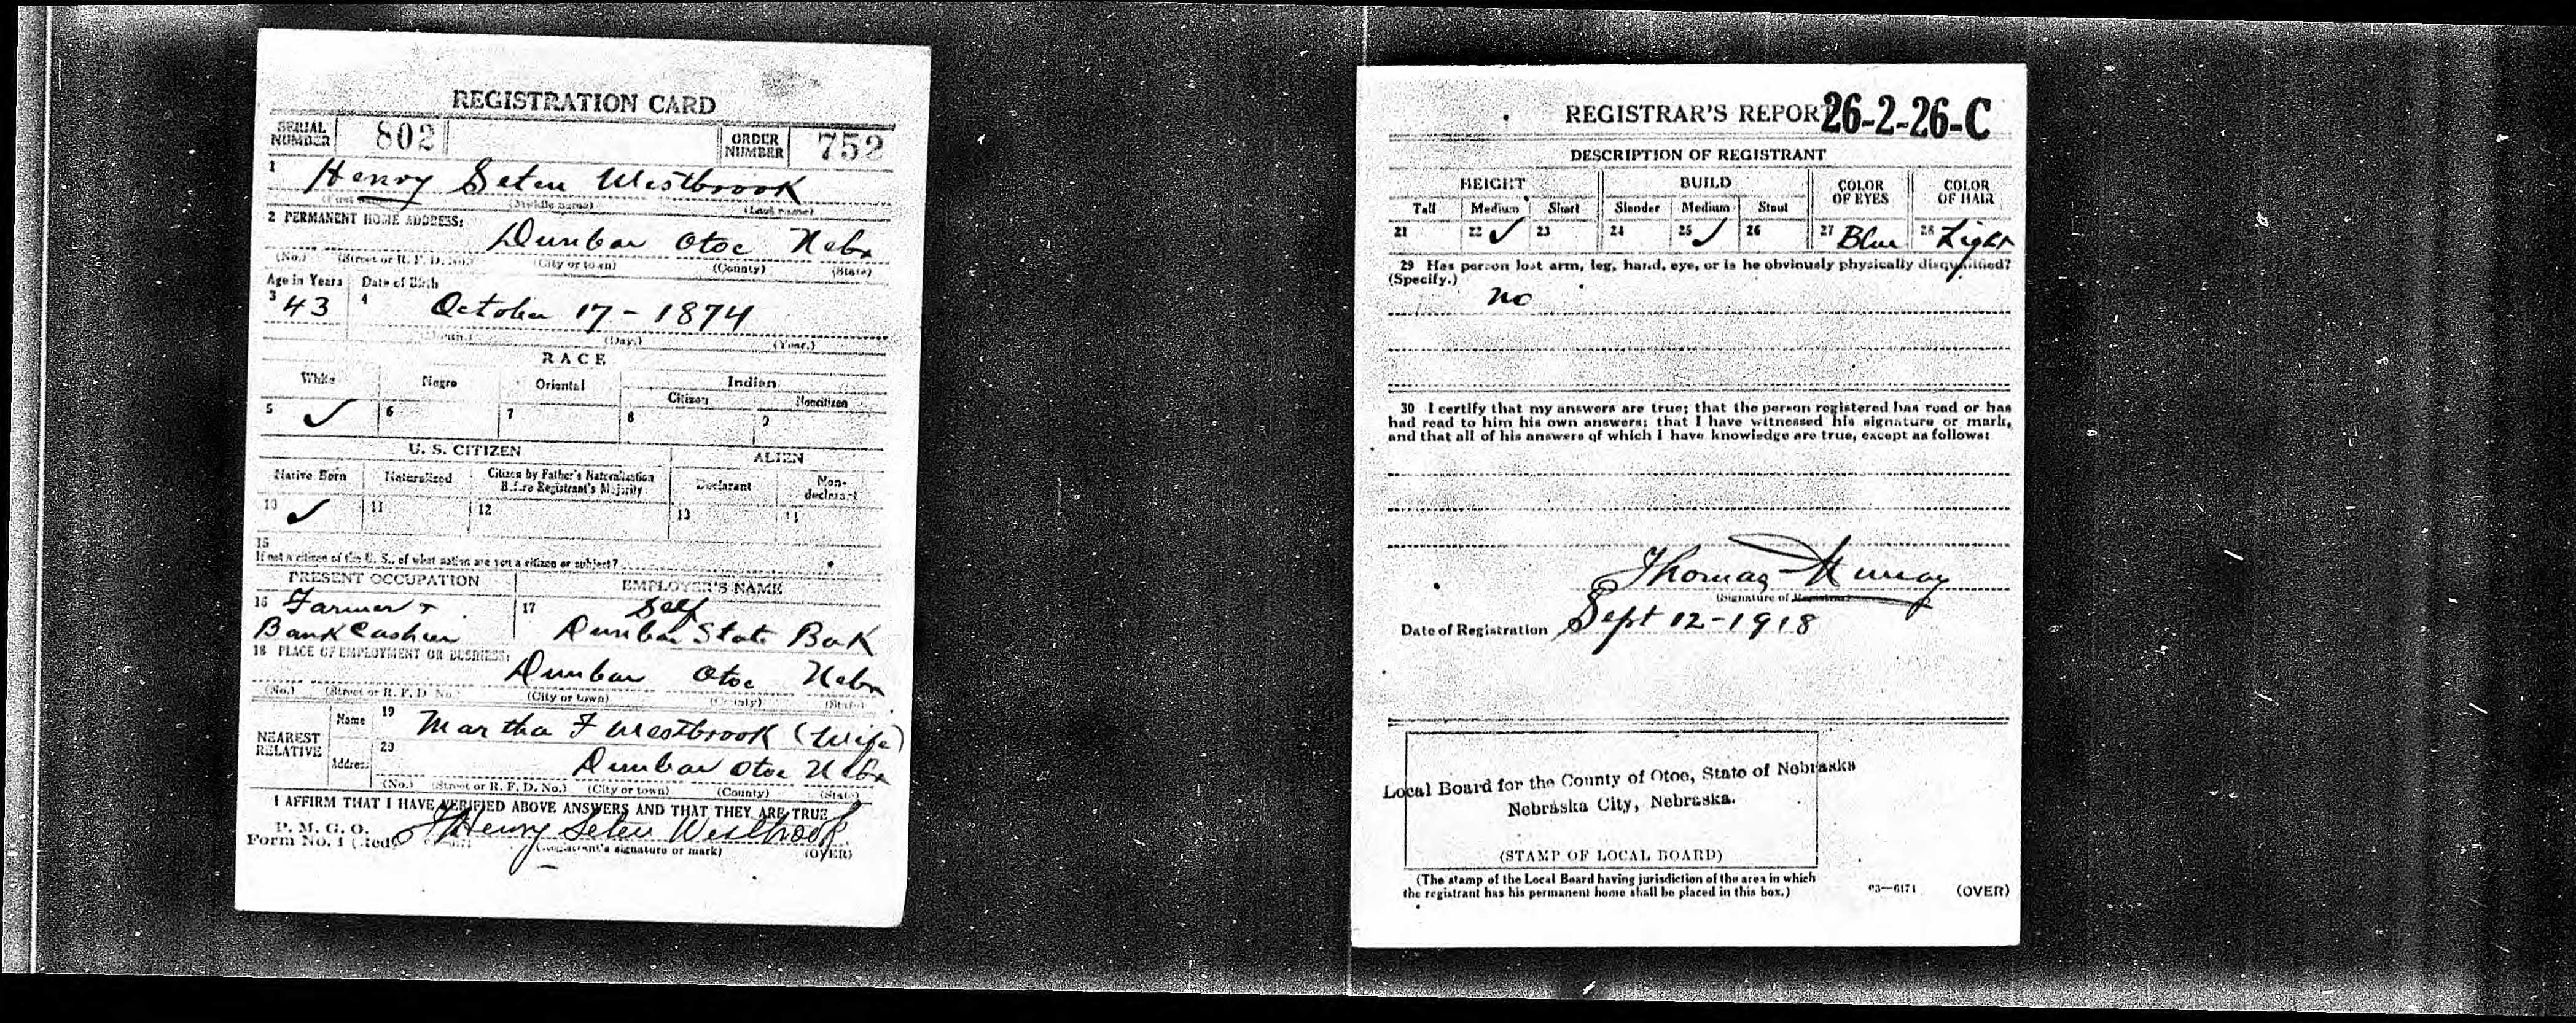 REGISTRATION CARD
SERIAL NUMBER 802 ORDER NUMBER 752
1 Henry Seten Westbrook
(First name) (Middle name) (Last name)
2 PERMANENT HOME ADDRESS:
Dunbar Otoe Nebr
(No.) (Street or R. F. D. No.) (City or town) (County) (State)
Age in Years Date of Birth
3 43 4 October 17 - 1874
(Month.) (Day.) (Year.)
RACE
White Negro Oriental Indian
Citizen Noncitizen
5 ✓ 6 7 8 9
U. S. CITIZEN ALIEN
Native Born Naturalized Citizen by Father's Naturalization Before Registrant's Majority Declarant Non-declarant
10 ✓ 11 12 13 14
15
If not a citizen of the U. S., of what nation are you a citizen or subject?
PRESENT OCCUPATION EMPLOYER'S NAME
16 Farmer + 17 Self
Bank Cashier Dunbar State Bak
18 PLACE OF EMPLOYMENT OR BUSINESS:
Dunbar Otoe Nebr
(No.) (Street or R. F. D. No.) (City or town) (County) (State)
NEAREST RELATIVE
Name 19 Martha F Westbrook (Wife)
Address 20 Dunbar Otoe Nebr
(No.) (Street or R. F. D. No.) (City or town) (County) (State)
I AFFIRM THAT I HAVE VERIFIED ABOVE ANSWERS AND THAT THEY ARE TRUE
P. M. G. O.
Form No. 1 (Red) Henry Seten Westbrook
(Registrant's signature or mark) (OVER)
REGISTRAR'S REPORT 26-2-26-C
DESCRIPTION OF REGISTRANT
HEIGHT BUILD COLOR OF EYES COLOR OF HAIR
Tall Medium Short Slender Medium Stout
21 22 ✓ 23 24 25 ✓ 26 27 Blue 28 Light
29 Has person lost arm, leg, hand, eye, or is he obviously physically disqualified?
(Specify.)
no
30 I certify that my answers are true; that the person registered has read or has
had read to him his own answers; that I have witnessed his signature or mark,
and that all of his answers of which I have knowledge are true, except as follows:
Thomas Murray
(Signature of Registrar)
Date of Registration Sept 12 - 1918
Local Board for the County of Otoe, State of Nebraska
Nebraska City, Nebraska.
(STAMP OF LOCAL BOARD)
(The stamp of the Local Board having jurisdiction of the area in which
the registrant has his permanent home shall be placed in this box.)
03—6171 (OVER)